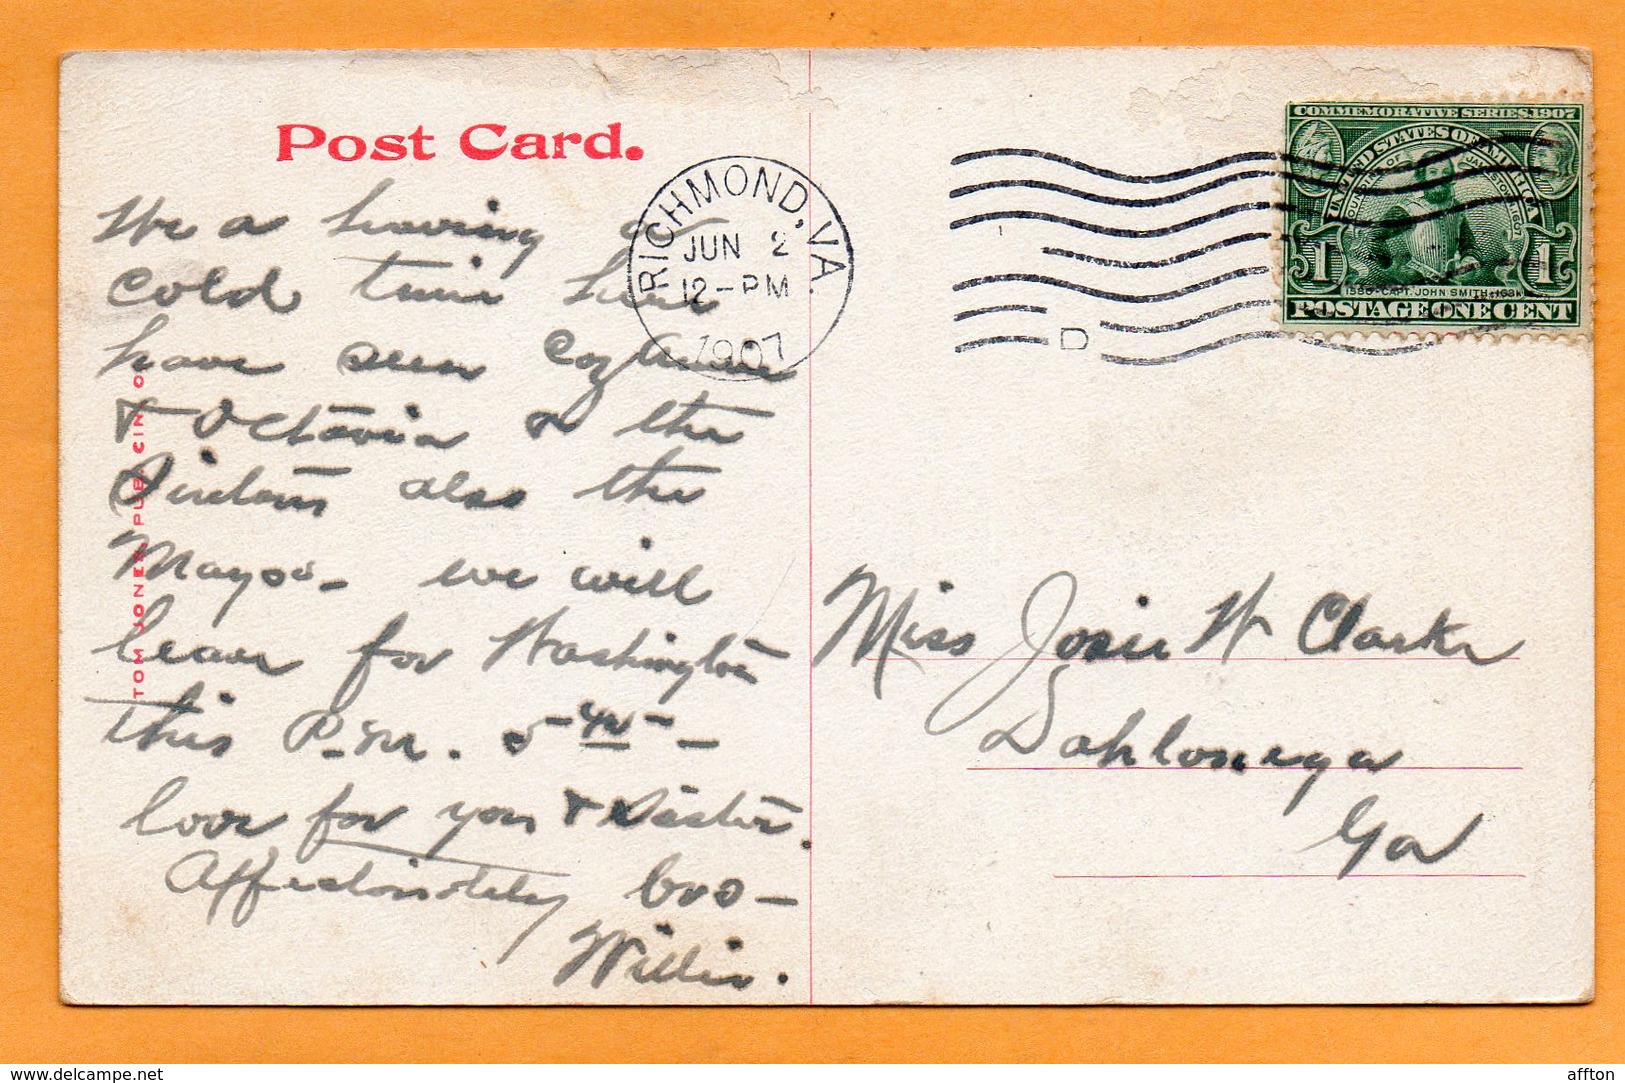 Post Card.
We a having a
cold time here
have seen
& Octavia & the
also the
Mayos - we will
leave for Washington
this P.M. 5-40-
love for you & Sister.
Affectionately bro-
Willis.
TOM JONES PUB. CIN O
RICHMOND, VA.
JUN 2
12-PM
1907
D
COMMEMORATIVE SERIES 1907
UNITED STATES OF AMERICA
FOUNDER OF JAMESTOWN 1607
1 1
1580-CAPT. JOHN SMITH-1631
POSTAGE ONE CENT
Miss Josie W Clarke
Dahlonega
Ga
delcampe.net
affton